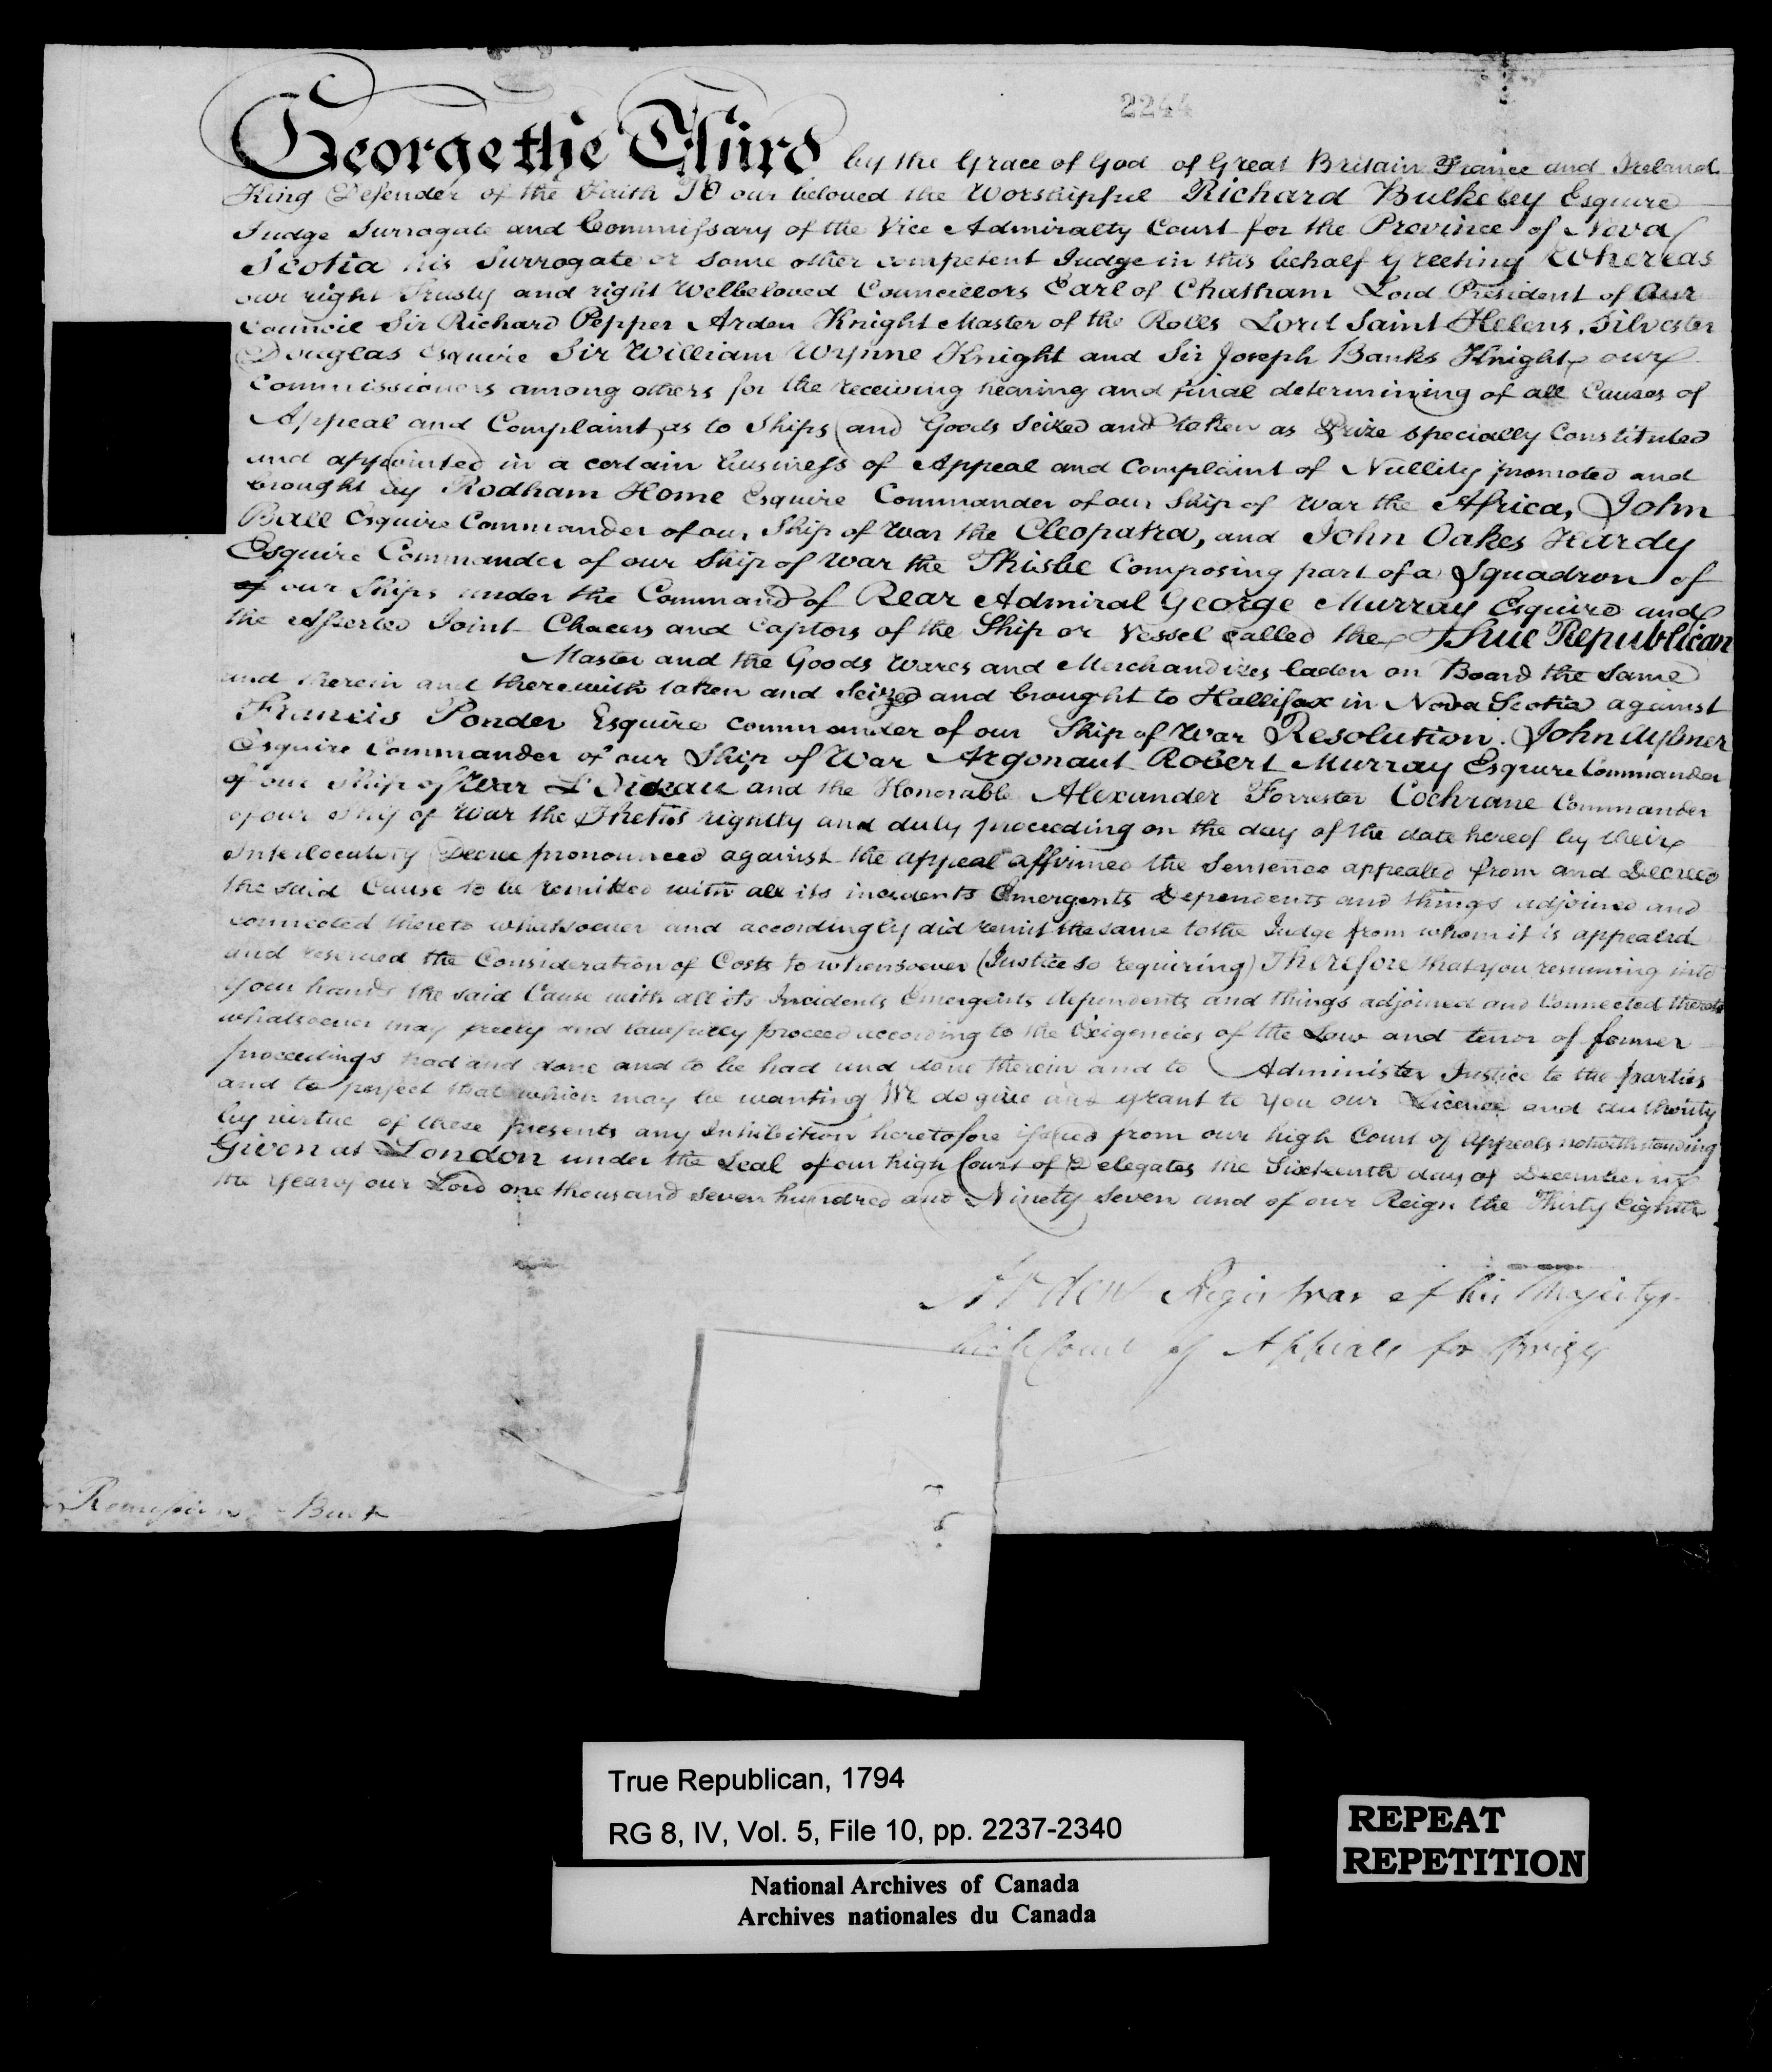 2244
George the Third by the Grace of God of Great Britain France and Ireland
King Defender of the Faith To our beloved the Worshipful Richard Bulkeley Esquire
Judge Surrogate and Commissary of the Vice Admiralty Court for the Province of Nova
Scotia his Surrogate or some other competent Judge in this behalf Greeting Whereas
our right Trusty and right Welbeloved Councillors Earl of Chatham Lord President of Our
Council Sir Richard Pepper Arden Knight Master of the Rolls Lord Saint Helens, Silvester
Douglas Esquire Sir William Wynne Knight and Sir Joseph Banks Knight our
Commissioners among others for the receiving hearing and final determining of all Causes of
Appeal and Complaint as to Ships and Goods Seized and taken as Prize specially Constituted
and appointed in a certain business of Appeal and Complaint of Nullity promoted and
brought by Rodham Home Esquire Commander of our Ship of War the Africa, John
Ball Esquire Commander of our Ship of War the Cleopatra, and John Oakes Hardy
Esquire Commander of our Ship of War the Thisbe Composing part of a Squadron of
of our Ships under the Command of Rear Admiral George Murray Esquire and
the asserted Joint Chacers and Captors of the Ship or Vessel called the True Republican
Master and the Goods Wares and Merchandizes laden on Board the Same
and therein and therewith taken and Seized and brought to Hallifax in Nova Scotia against
Francis Ponder Esquire commander of our Ship of War Resolution. John
Esquire Commander of our Ship of War Argonaut Robert Murray Esquire Commander
of our Ship of War L'Oiseau and the Honorable Alexander Forrester Cochrane Commander
of our Ship of War the Thetis rightly and duly proceeding on the day of the date hereof by their
Interlocutory Decree pronounced against the appeal affirmed the Sentence appealed from and Decreed
the said Cause to be remitted with all its incidents Emergents Dependents and things adjoined and
connected thereto whatsoever and accordingly did remit the same to the Judge from whom it is appealed
and reserved the Consideration of Costs to whensoever (Justice so requiring) Therefore that you resuming into
your hands the said Cause with all its Incidents Emergents dependents and things adjoined and Connected thereto
whatsoever may freely and lawfully proceed according to the Exigencies of the Law and tenor of former
proceedings had and done and to be had and done therein and to Administer Justice to the parties
and to perfect that which may be wanting We do give and grant to You our Licence and Authority
by virtue of these presents any Inhibition heretofore issued from our high Court of Appeals notwithstanding
Given at London under the Seal of our high Court of Delegates the Sixteenth day of December in
the Year of our Lord one thousand seven hundred and Ninety Seven and of our Reign the Thirty Eighth
Arden Registrar of his Majestys
high Court of Appeals for Prizes
Remission Bush
True Republican, 1794
RG 8, IV, Vol. 5, File 10, pp. 2237-2340
National Archives of Canada
Archives nationales du Canada
REPEAT
REPETITION